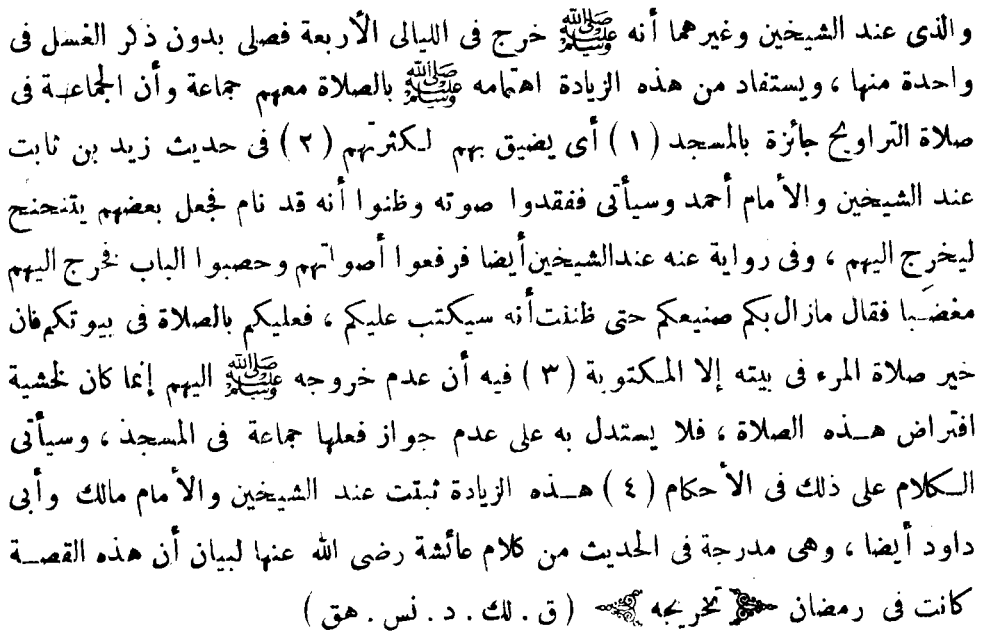 والذى عند الشيخين وغيرهما أنه ﷺ خرج فى الليالى الأربعة فصلى بدون ذكر الغسل فى
واحدة منها ، ويستفاد من هذه الزيادة اهتمامه ﷺ بالصلاة معهم جماعة وأن الجماعة فى
صلاة التراويح جائزة بالمسجد (١) أى يضيق بهم لكثرتهم (٢) فى حديث زيد بن ثابت
عند الشيخين والأمام أحمد وسيأتى ففقدوا صوته وظنوا أنه قد نام فجعل بعضهم يتنحنح
ليخرِج اليهم ، وفى رواية عنه عند الشيخين أيضا فرفعوا أصواتهم وحصبوا الباب فخرج اليهم
مغضبا فقال مازال بكم صنيعكم حتى ظننت أنه سيكتب عليكم ، فعليكم بالصلاة فى بيوتكم فان
خير صلاة المرء فى بيته إلا المكتوبة (٣) فيه أن عدم خروجه ﷺ اليهم إنما كان لخشية
افتراض هذه الصلاة ، فلا يستدل به على عدم جواز فعلها جماعة فى المسجد ، وسيأتى
الكلام على ذلك فى الأحكام (٤) هذه الزيادة ثبتت عند الشيخين والأمام مالك وأبى
داود أيضا ، وهى مدرجة فى الحديث من كلام عائشة رضى الله عنها لبيان أن هذه القصة
كانت فى رمضان تخريجه (ق . لك . د . نس . هق)